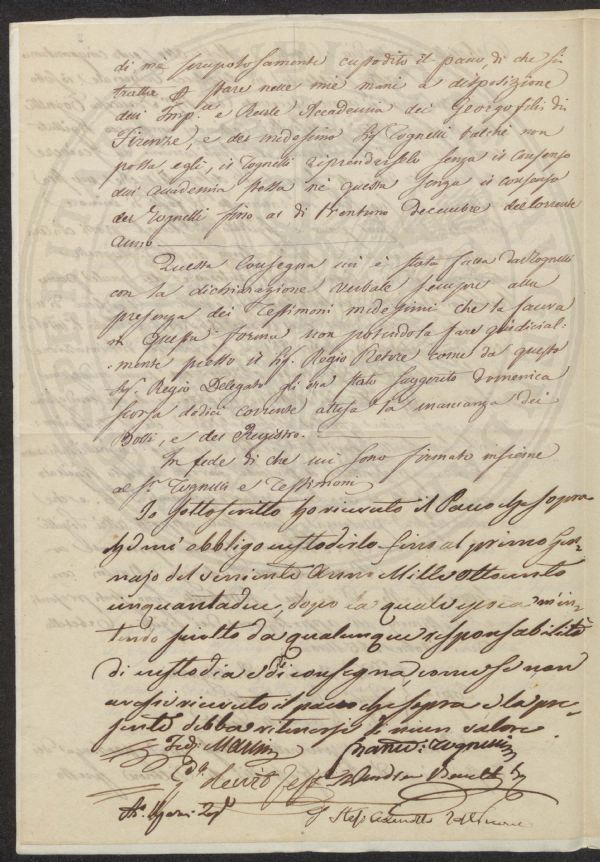 da me scrupolosamente custodito il pacco, di che si
tratta stare nelle mie mani a disposizione
dell' Imp.le e Reale Accademia dei Georgofili di
Firenze, e del medesimo Sig. Tognelli talché non
possa egli, il Tognelli riprenderselo senza il consenso
dell' Accademia stessa né questa senza il consenso
del Tognelli fino al di trentuno Decembre del corrente
anno.
Questa consegna mi è stata fatta dal Tognelli
con la dichiarazione verbale sempre alla
presenza dei Testimoni medesimi che la faceva
in questa forma non potendola fare giudicial-
mente presso il Sig. Regio Pretore come da questo
Sig. Regio Delegato gli era stato suggerito Domenica
scorsa dodici corrente attesa la mancanza dei
Bolli, e del Registro.
In fede di che mi sono firmato insieme
al Sr. Tognelli e Testimoni
Io sottoscritto ho ricevuto il Pacco che sopra
che mi obbligo custodirlo fino al primo Gen-
najo del veniente Anno Mille ottocento
cinquantadue, dopo la quale epoca m'in-
tendo sciolto da qualunque responsabilità
di custodia e di consegna, come se non
avessi ricevuto il pacco che sopra e la pre-
sente debba ritenersi di niun valore
Tognelli